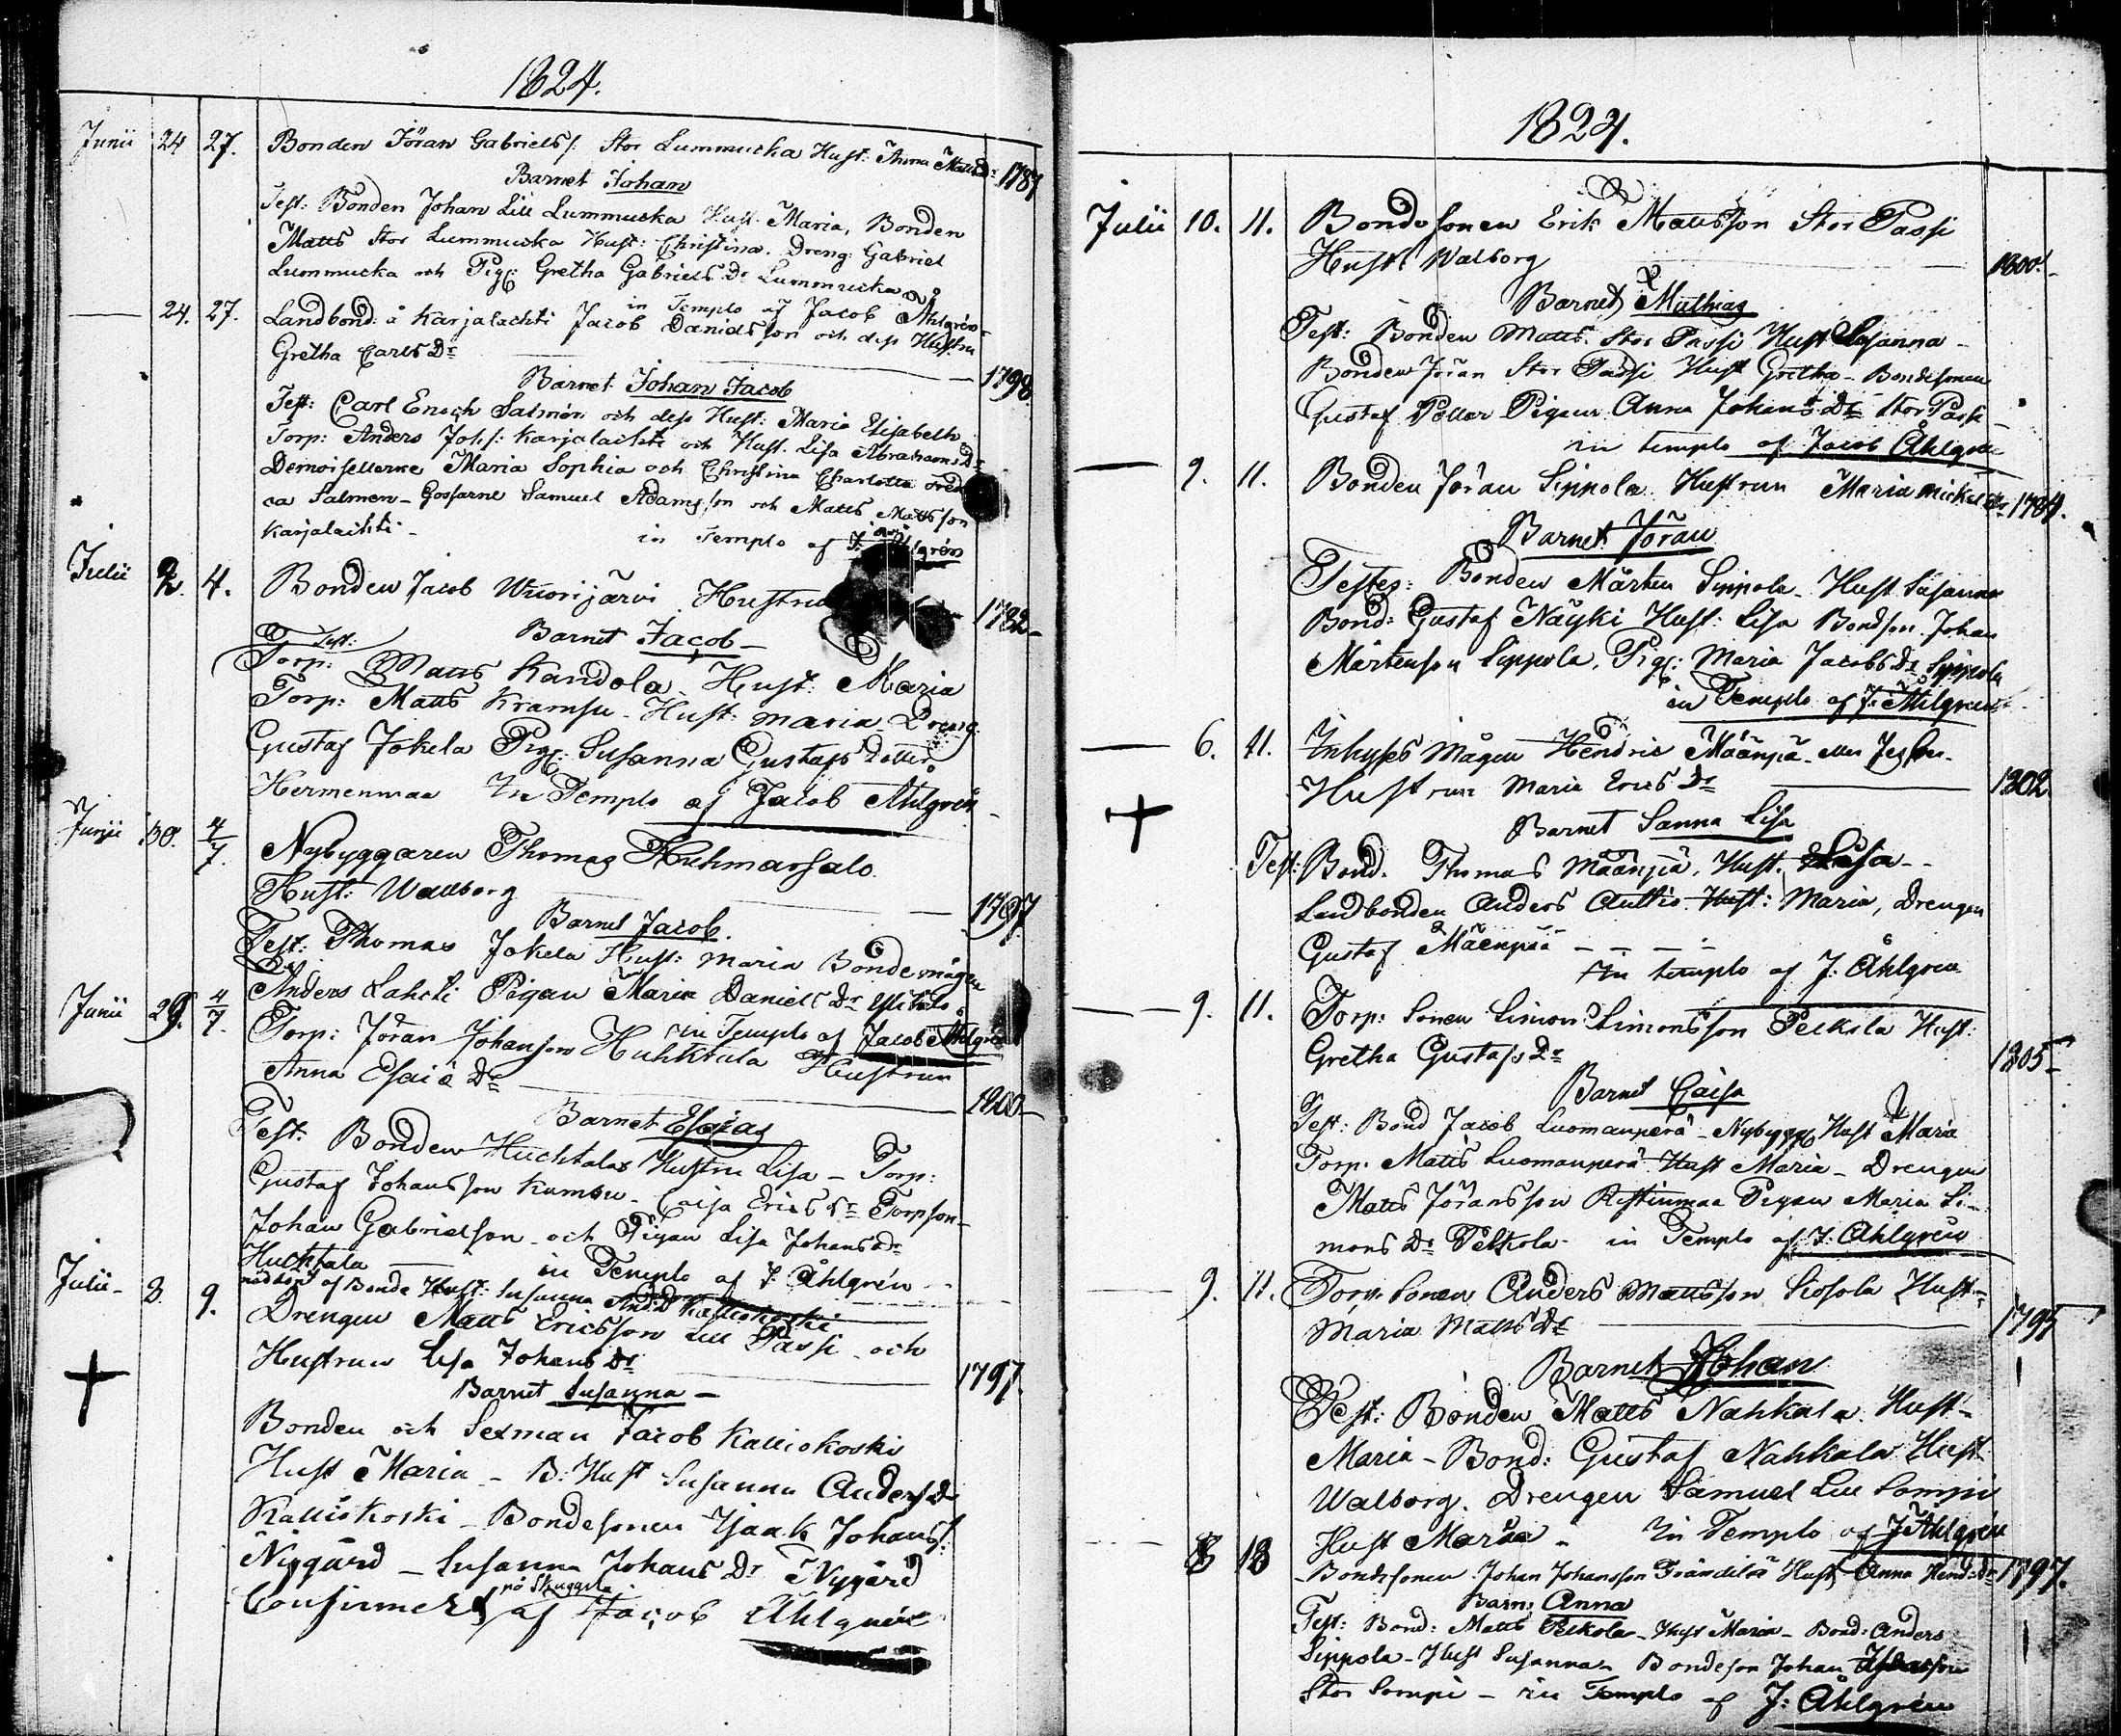 1824.
Junii 24 27. Bonden Jöran Gabriels/: Stor Lummucka Hust: Anna Mattsdr 1787
Barnet Johan
Test: Bonden Johan Lill Lummucka Hust: Maria, Bonden
Matts Stor Lummucka Hust: Christina. Dreng: Gabriel
Lummucka och Pig: Gretha Gabriels Dr Lummucka
in Templo af Jacob Åhlgrén
24. 27. Landbond: å Karjalachti Jacob Danielsson och dess Hustru
Gretha Carls Dr 1798.
Barnet Johan Jacob
Test: Carl Enoch Salmén och dess Hust: Maria Elisabeth
Torp: Anders Joh/: Karjalachti och Hust. Lisa Abrahams Dr
Demoisellerne Maria Sophia och Christina Charlotta
Salmen - Gossarne Samuel Adamsson och Matts Mattsson
Karjalachti - in Templo af J: Åhlgrén
Julii 2. 4. Bonden Jacob Wuorijärvi Hustru 1782
Barnet Jacob
Test:
Torp: Matts Kandola Hust: Maria
Torp: Matts Kramsu - Hust: Maria Dreng:
Gustaf Jokela Pig: Susanna Gustafs Dotter
Hermenmaa In Templo af Jacob Åhlgrén
Junii 30. 4/7. Nybyggaren Thomas Huhmarsalo
Hust: Wallborg 1797
Barnet Jacob.
Test: Thomas Jokela Hust: Maria Bondemågen
Anders Lahti Pigan Maria Daniels Dr
in Templo af Jacob Åhlgrén
Junii 29. 4/7. Torp: Jöran Johansson Huhktala Hustrun
Anna Esaiæ Dr 1800
Barnet Esaias
Test. Bonden Huchtalas Hustru Lisa - Torp:
Gustaf Johansson Kumbu - Caisa Erics Dr Torpson
Johan Gabrielson och Pigan Lisa Johans dr
Huchtala in Templo af J: Åhlgrén
nöddöpt af Bonde Hust: Susanna Andsd Kalliokoski
Julii - 8. 9. Drengen Matts Ericsson Lill Passi och
Hustrun Lisa Johans Dr 1797.
Barnet Susanna -
Bonden och Sexman Jacob Kalliokoski
Hust Maria - B: Hust Susanna Anders Dr
Kalliokoski - Bondesonen Isaak Johans/:
Nygård - Susanna Johans Dr Nygård
Confirmerd af Jacob Åhlgrén
1824.
Julii 10. 11. Bondesonen Erik Mattsson Stor Passi
Hust: Walborg 1800.
Barnet Mathias
Test: Bonden Matts Stor Passi Hust Susanna -
Bonden Jöran Stor Passi Hust Gretha - Bondesonen
Gustaf Pollar Pigan Anna Johans Dr Stor Passi
in templo af Jacob Åhlgrén
9. 11. Bonden Jöran Sippola Hustrun Maria Mickels dr 1784.
Barnet Jöran
Testes: Bonden Mårten Sippola - Hust Susanna
Bond: Gustaf Näyki Hust: Lisa Bondson Johan
Mårtenson Sippola, Pig: Maria Jacobs Dr Sippola
in Templo af J: Åhlgrén
6. 11. Inhyses Mågen Hendric Määnpä
Hustrun Maria Erics Dr 1802.
Barnet Sanna Lisa
Test: Bond. Thomas Määnpä, Hust. Lisa - -
Landbonden Anders Auttio Hust: Maria, Drengen
Gustaf Mäenpää - - - -
in templo af J: Åhlgren
9. 11. Torp: Sonen Simon Simonsson Pelkola Hust:
Gretha Gustafs Dr 1805
Barnet Caisa
Test: Bond Jacob Luomanperä - Nybygg Hust Maria
Torp. Matts Luomanperä Hust Maria - Drengen
Matts Jöransson Ristinmaa Pigan Maria Si-
mons Dr Pelkola - in Templo af J: Åhlgrén
9. 11. Torp: Sonen Anders Mattsson Sissola Hust -
Maria Matts Dr 1795
Barnet Johan
Test: Bonden Matts Nahkala Hust -
Maria - Bond: Gustaf Nahkala Hust
Walborg. Drengen Samuel Lill Sompi
Hust Maria - In Templo af J Åhlgrén
8 18 Bondesonen Johan Johansson Frändilä Hust Anna Hend: Dr 1797.
Barn: Anna
Test: Bond: Matts Pelkola - Hust Maria - Bond: Anders
Sippola - Hust Susanna - Bondeson Johan
Stor Sompi - in Templo af J: Åhlgrén